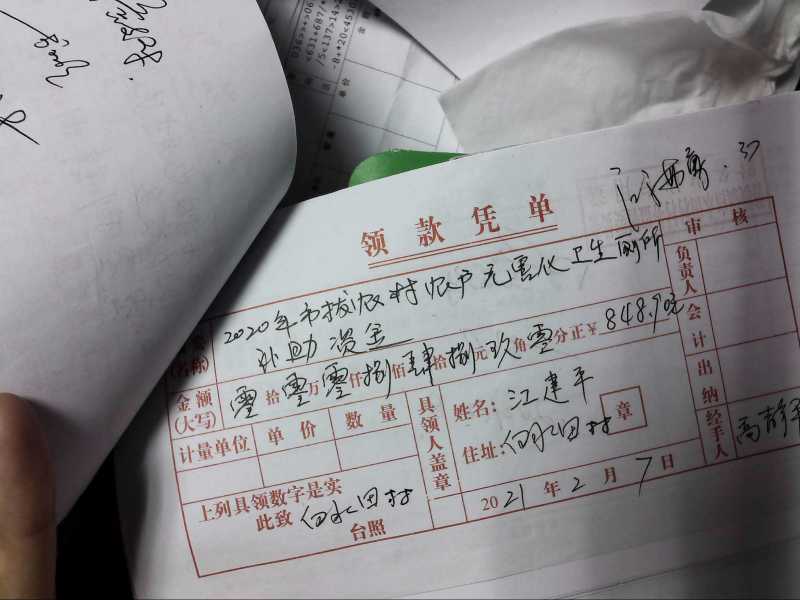 036>>+>06
<631+687/
/5<137>14>
-8+*20<4530
单价
领款凭单
审核
(名称)
2020年市拨农村农户无害化卫生厕所
补助资金
负责人
金额
(大写)
零拾零万零仟捌佰肆拾捌元玖角零分正¥848.90元
会计
计量单位 单价 数量
具领人盖章
姓名:江建平
住址:白水田村
章
出纳
经手人
上列具领数字是实
此致 白水田村
台照
2021年2月7日